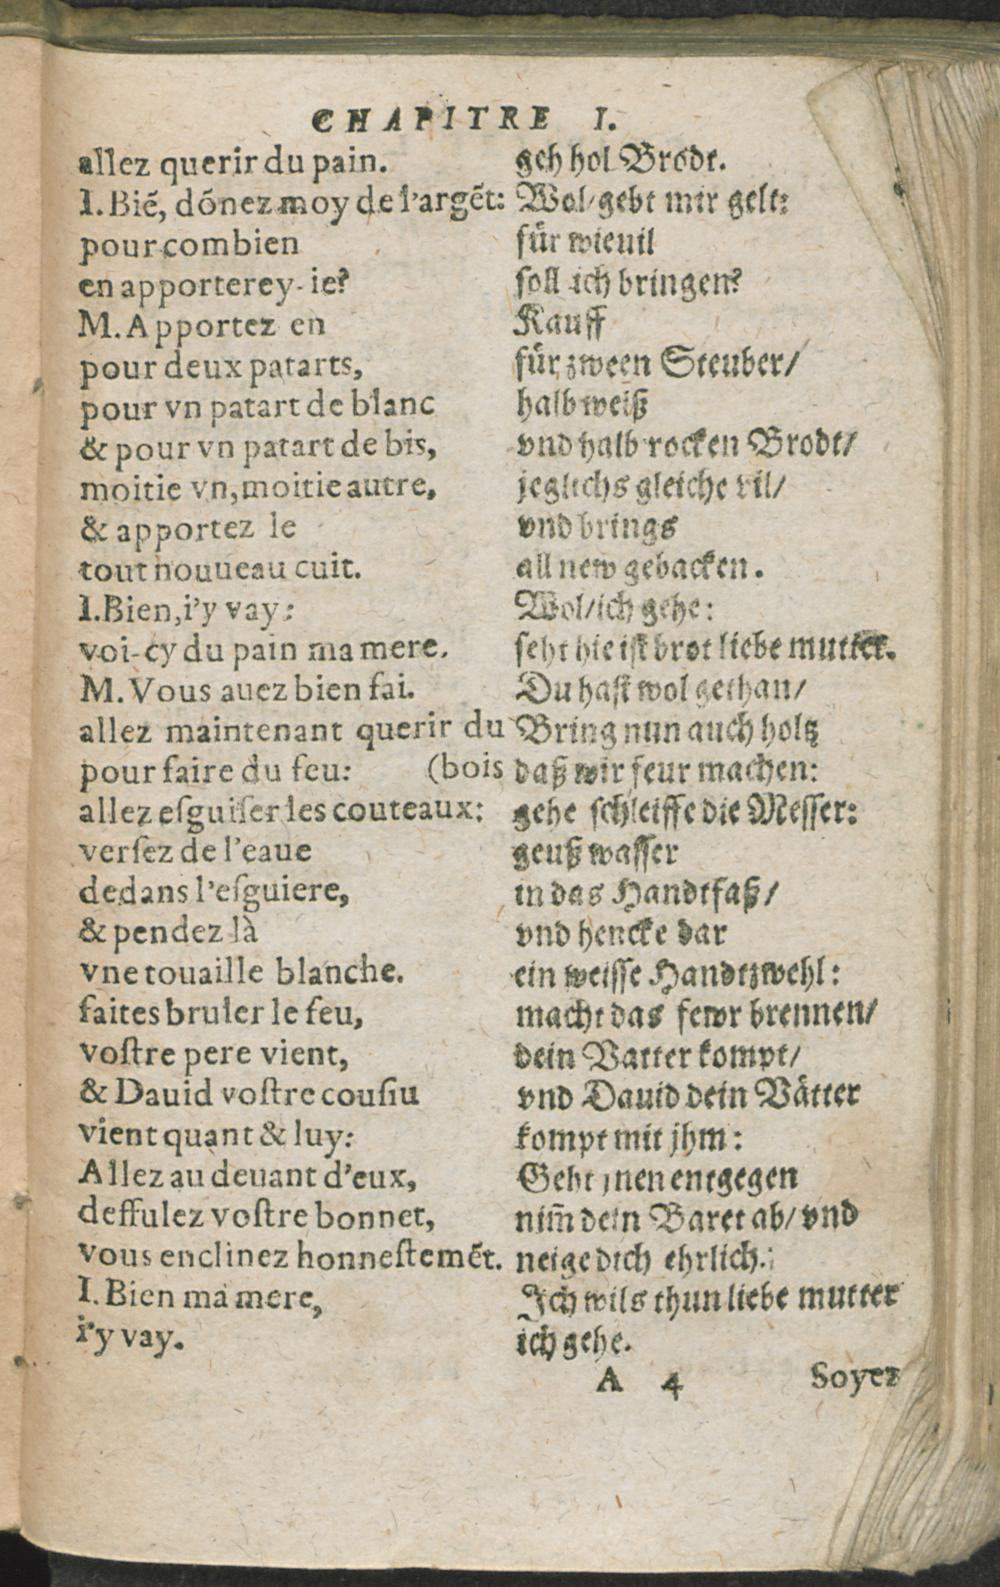 CHAPITRE I.
allez querir du pain.
I. Biẽ, dõnez moy de l'argẽt:
pour combien
en apporterey-ie?
M. Apportez en
pour deux patarts,
pour vn patart de blanc
& pour vn patart de bis,
moitie vn, moitie autre,
& apportez le
tout nouueau cuit.
I. Bien, i'y vay:
voi-cy du pain ma mere.
M. Vous auez bien fai.
allez maintenant querir du
pour faire du feu: (bois
allez eſguiſer les couteaux:
verſez de l'eaue
dedans l'eſguiere,
& pendez là
vne touaille blanche.
faites bruler le feu,
voſtre pere vient,
& Dauid voſtre couſiu
vient quant & luy:
Allez au deuant d'eux,
deffulez voſtre bonnet,
vous enclinez honneſtemẽt.
I. Bien ma mere,
i'y vay.
geh hol Brodt.
Wol/gebt mir gelt:
für wieuil
ſoll ich bringen?
Kauff
für zween Steuber/
halb weiß
vnd halb rocken Brodt/
jeglichs gleiche vil/
vnd brings
all new gebacken.
Wol/ich gehe:
ſeht hie iſt brot liebe mutter.
Du haſt wol gethan/
Bring nun auch holtz
daß wir feur machen:
gehe ſchleiffe die Meſſer:
geuß waſſer
in das Handtfaß/
vnd hencke dar
ein weiſſe Handtzwehl:
macht das fewr brennen/
dein Vatter kompt/
vnd Dauid dein Vätter
kompt mit jhm:
Geht jnen entgegen
nim̃ dein Baret ab/vnd
neige dich ehrlich.
Ich wils thun liebe mutter
ich gehe.
A 4 Soyez